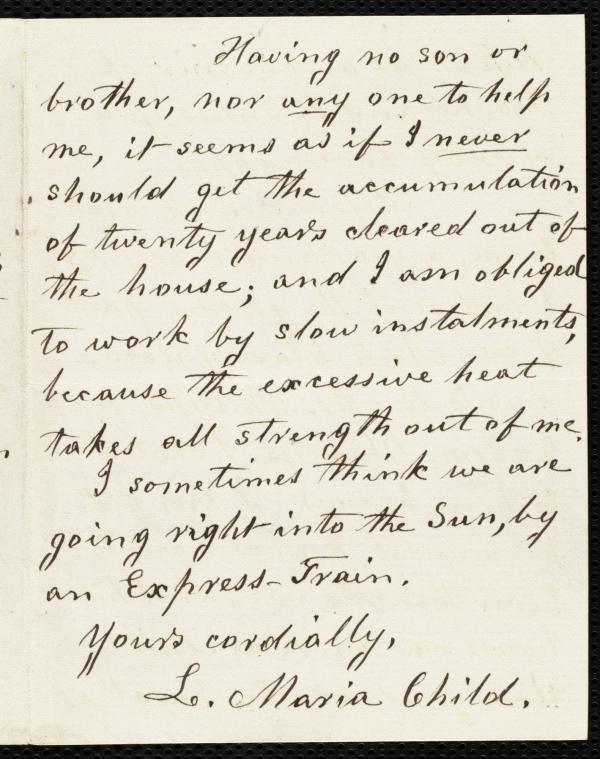 Having no son or
brother, nor any one to help
me, it seems as if I never
should get the accumulation
of twenty years cleared out of
the house; and I am obliged
to work by slow instalments,
because the excessive heat
takes all strength out of me.
I sometimes think we are
going right into the Sun, by
an Express-Train.
Yours cordially,
L. Maria Child.